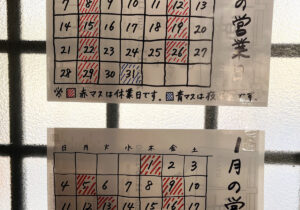 の営業
7 8 9 10 11 12 13
14 15 16 17 18 19 20
21 22 23 24 25 26 27
28 29 30 31
※ 赤マスは休業日です。 青マスは夜 です。
1月の営
日 月 火 水 木 金 土
1 2 3
4 5 6 7 8 9 10
11 12 13 14 15 16 17